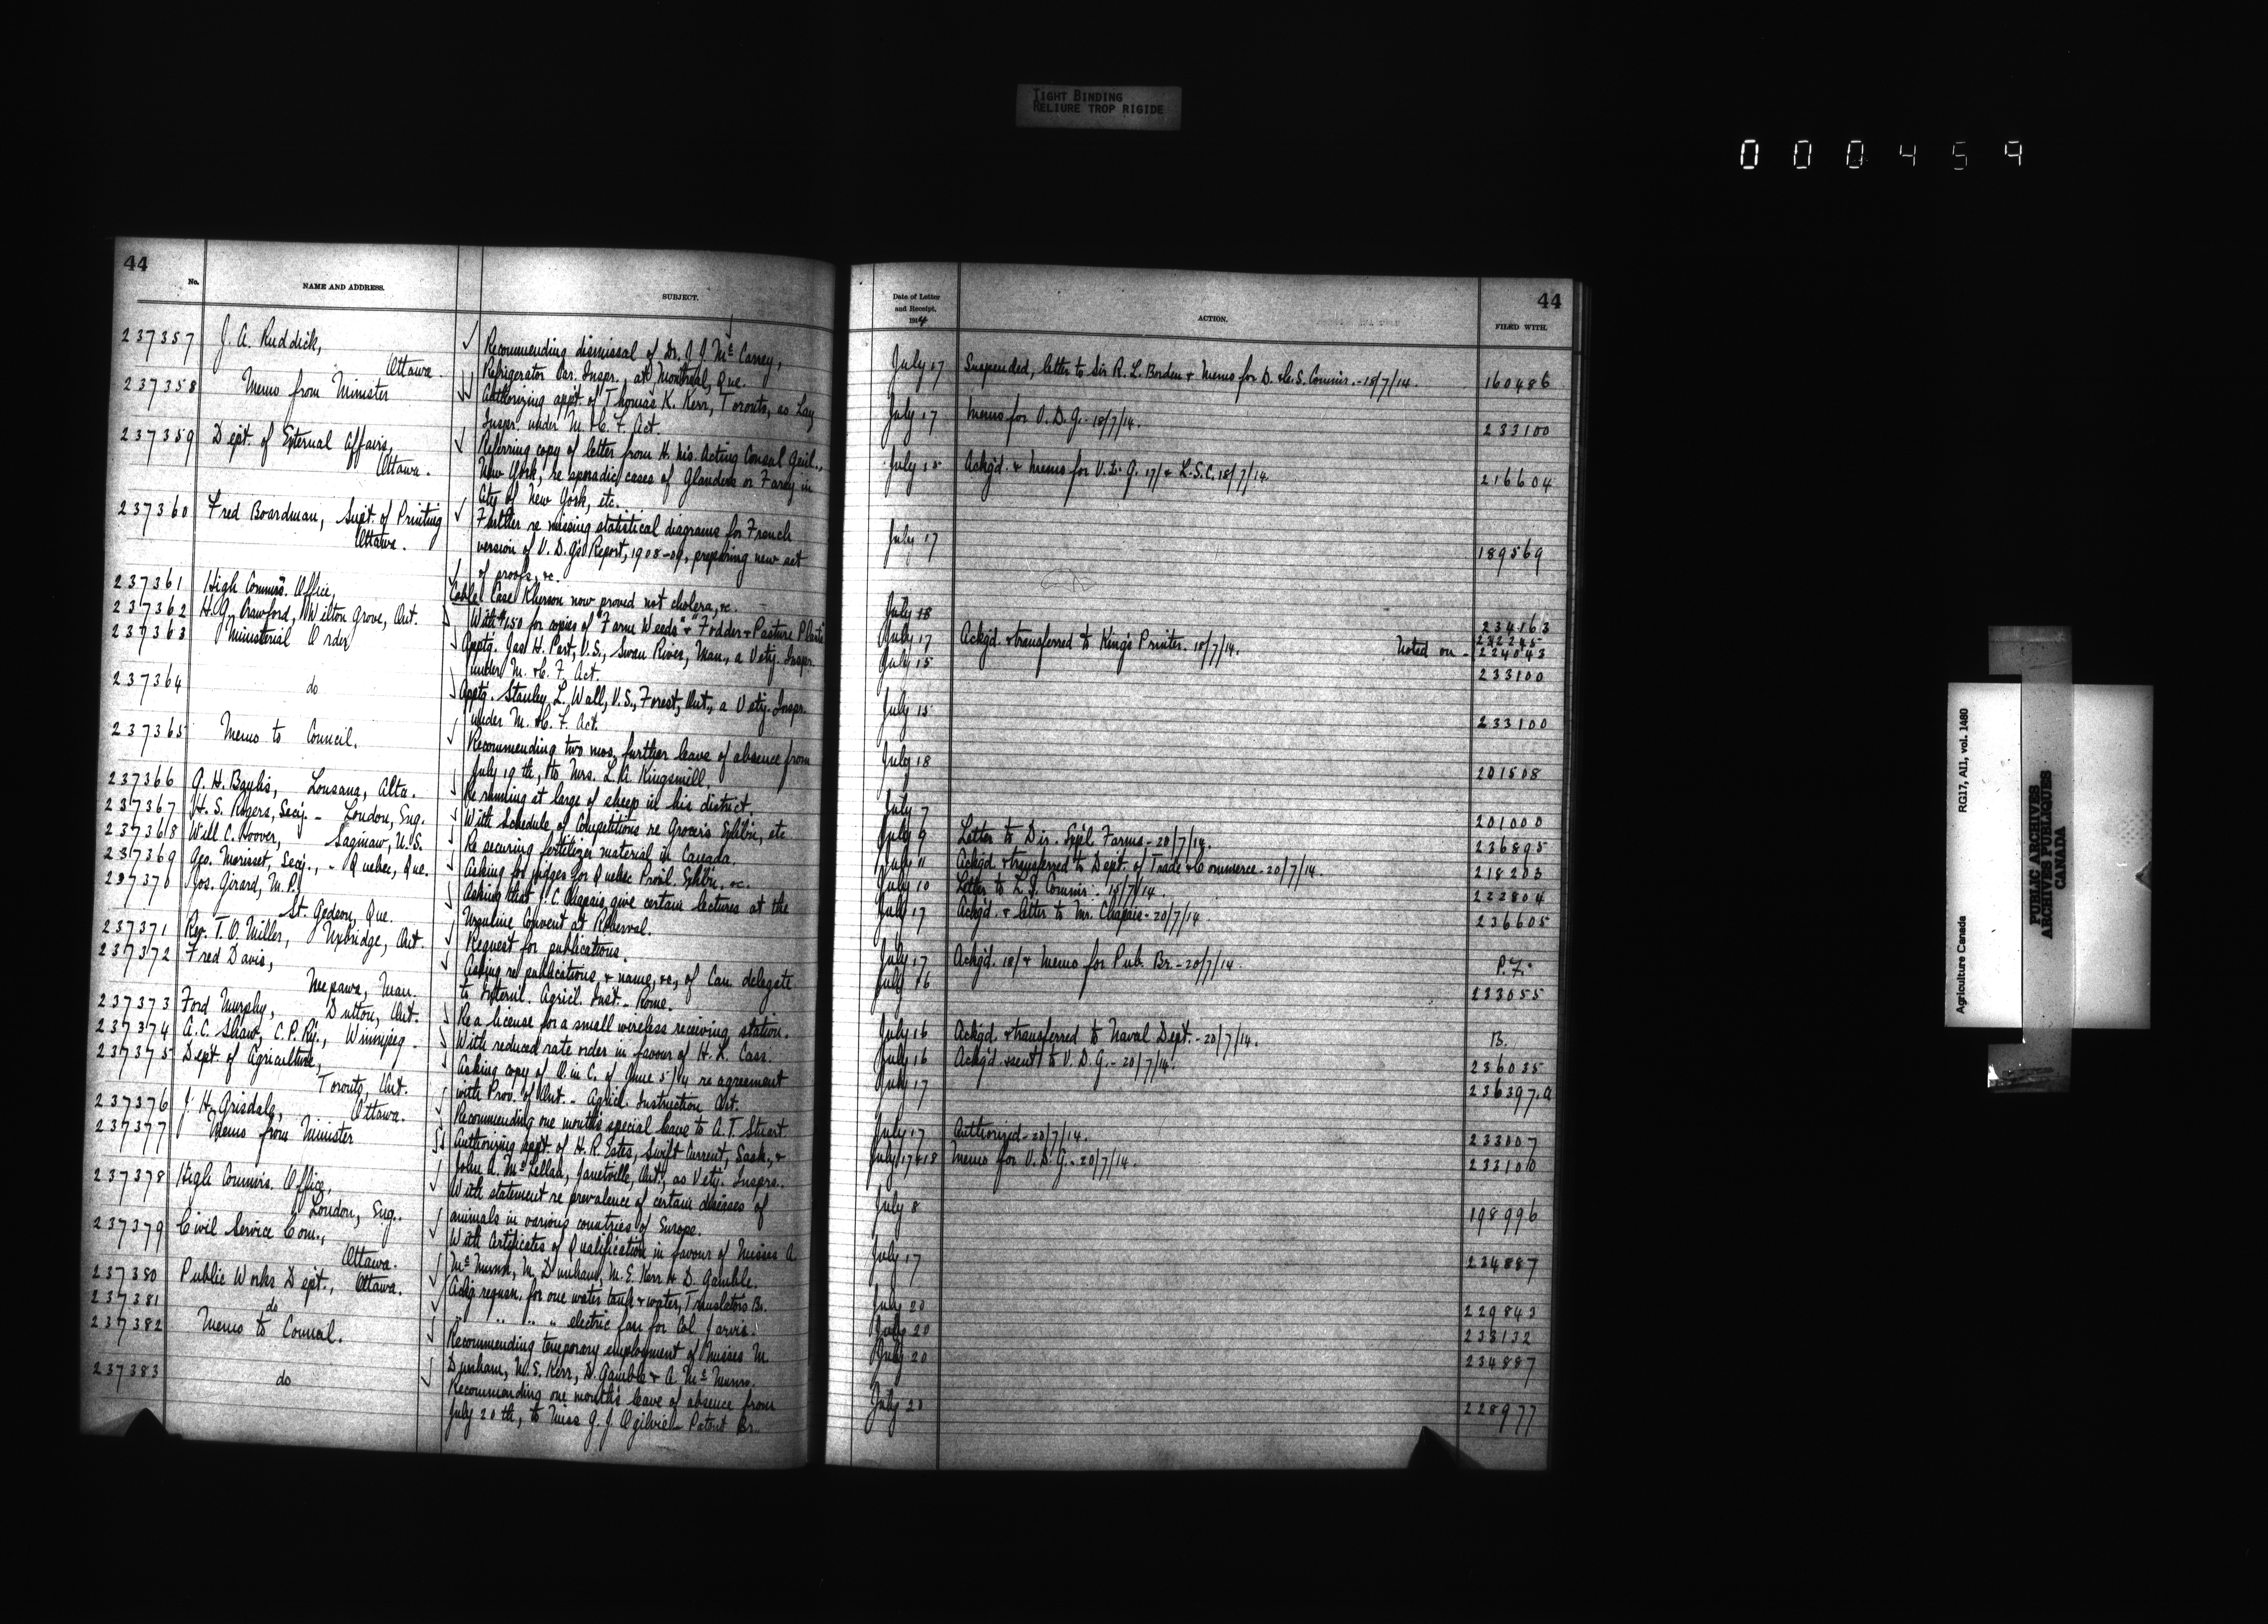 TIGHT BINDING
RELIURE TROP RIGIDE
000459
44
No. NAME AND ADDRESS. SUBJECT.
237357 J. A. Ruddick, Recommending dismissal of Dr. J. J. McCarrey,
Ottawa. Refrigerator Car. Inspr., at Montreal, Que.
237358 Memo from Minister Authorizing appt. of Thomas K. Kerr, Toronto, as Lay
Inspr. under M. & C. F. Act.
237359 Dept. of External Affairs, Referring copy of letter from H. M's. Acting Consul Genl.,
Ottawa. New York, re sporadic cases of Glanders or Farcy in
City of New York, etc.
237360 Fred Boardman, Supt. of Printing Further re missing statistical diagrams for French
Ottawa. version of V. D. G's Report, 1908-09, preparing new set
of proofs, &c.
237361 High Commrs. Office, Cable. Case Kherson now proved not cholera, &c.
237362 H. G. Crawford, Wilton Grove, Ont. With $1.50 for copies of "Farm Weeds" & "Fodder & Pasture Plants"
237363 Ministerial Order Apptg. Jas. H. Part, V.S., Swan River, Man., a Vety. Inspr.
under M. & C. F. Act.
237364 do Apptg. Stanley L. Wall, V.S., Forest, Ont., a Vety. Inspr.
under M. & C. F. Act.
237365 Memo to Council. Recommending two mos. further leave of absence from
July 19th, to Mrs. L. A. Kingsmill.
237366 A. H. Baylis, Lousana, Alta. Re running at large of sheep in his district.
237367 H. S. Rogers, Secy. - London, Eng. With Schedule of Competitions re Grocers Exhibn., etc
237368 Will C. Hoover, Saginaw, U.S. Re securing fertilizer material in Canada.
237369 Geo. Morisset, Secy., - Quebec, Que. Asking for judges for Quebec Provl. Exhibn. &c.
237370 Jos. Girard, M.P. Asking that J. C. Chapais give certain lectures at the
St. Gedeon, Que. Ursuline Convent at Roberval.
237371 Rev. T. O. Miller, Uxbridge, Ont. Request for publications.
237372 Fred Davis, Asking re publications, & name, &c, of Can. delegate
Neepawa, Man. to Internl. Agricl. Inst. - Rome.
237373 Ford Murphy, Dutton, Ont. Re a license for a small wireless receiving station.
237374 A. C. Shaw, C. P. Ry., Winnipeg - With reduced rate order in favour of H. L. Cass.
237375 Dept. of Agriculture, Asking copy of O. in C. of June 5/14 re agreement
Toronto, Ont. with Prov. of Ont. - Agricl. Instruction Act.
237376 J. H. Grisdale, Ottawa. Recommending one months special leave to A. T. Stuart.
237377 Memo from Minister Authorizing appt. of H. R. Estes, Swift Current, Sask., &
John A. McLellan, Janetville, Ont., as Vety. Insprs.
237378 High Commrs. Office, With statement re prevalence of certain diseases of
London, Eng. animals in various countries of Europe.
237379 Civil Service Com., With Certificates of Qualification in favour of Misses A.
Ottawa. McMunn, M. Dunham, M. E. Kerr & D. Gamble.
237380 Public Works Dept., Ottawa. Ackg requsn. for one water tank & water, Translators Br.
237381 do " " " " electric fan for Col. Jarvis.
237382 Memo to Council. Recommending temporary employment of Misses M.
Dunham, M. E. Kerr, D. Gamble & A. McMunn.
237383 do Recommending one month's leave of absence from
July 20th, to Miss G. J. Ogilvie - Patent Br.
44
Date of Letter and Receipt, 1914 ACTION. FILED WITH.
July 17 Suspended, letter to Sir R. L. Borden & Memo for D. & C. S. Commr. - 18/7/14. 160486
July 17 Memo for V. D. G. - 18/7/14. 233100
July 15 Ackg'd. & Memo for V. D. G. 17/ & L. S. C. 18/7/14. 216604
July 17 189569
July 18 234163
July 17 Ackg'd. & transferred to King's Printer. 18/7/14. Noted on - 224043
July 15 233100
July 15 233100
July 18 201508
July 7 201000
July 9 Letter to Dir. Expl. Farms - 20/7/14. 236895
July 11 Ackgd. & transferred to Dept. of Trade & Commerce - 20/7/14. 218203
July 10 Letter to L. S. Commr. 18/7/14. 222804
July 17 Ackg'd. & letter to Mr. Chapais - 20/7/14. 236605
July 17 Ackg'd. 18/ & Memo for Pub. Br. - 20/7/14. P. F.
July 16 233055
July 16 Ackgd. & transferred to Naval Dept. - 20/7/14. B.
July 16 Ackg'd. & sent to V. D. G. - 20/7/14. 236035
July 17 236397.a
July 17 Authorized - 20/7/14. 233007
July 17 & 18 Memo for V. D. G. - 20/7/14. 233100
July 8 198996
July 17 234887
July 20 229843
July 20 233132
July 20 234887
July 20 228977
Agriculture Canada RG17, AI1, vol. 1480
PUBLIC ARCHIVES
ARCHIVES PUBLIQUES
CANADA